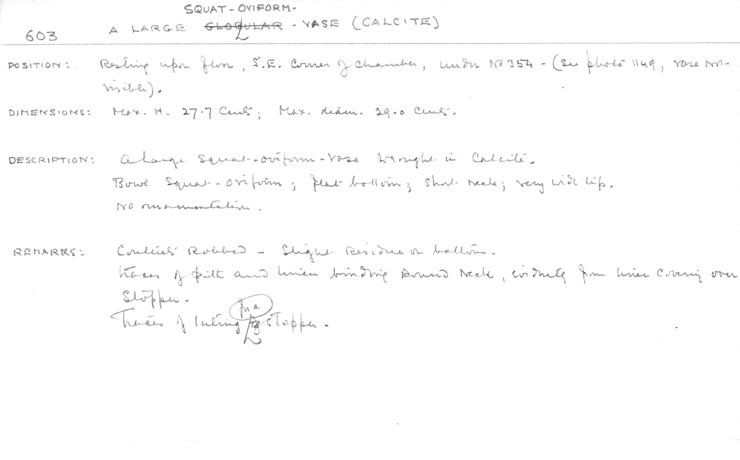 SQUAT-OVIFORM-
603 A LARGE GLOBULAR-VASE (CALCITE)
POSITION: Resting upon floor, S.E. corner of chamber, under No 354 - (See photo 1149, vase not
visible).
DIMENSIONS: Max. H. 27.7 Cents; Max. diam. 29.0 Cents.
DESCRIPTION: A large squat-oviform-vase wrought in Calcite.
Bowl squat-oviform; flat bottom; short neck; very wide lip.
No ornamentation.
REMARKS: Contents Robbed - Slight Residue on bottom.
Traces of pith and linen binding round neck, from linen covering over
Stopper.
for a
Traces of luting stopper.